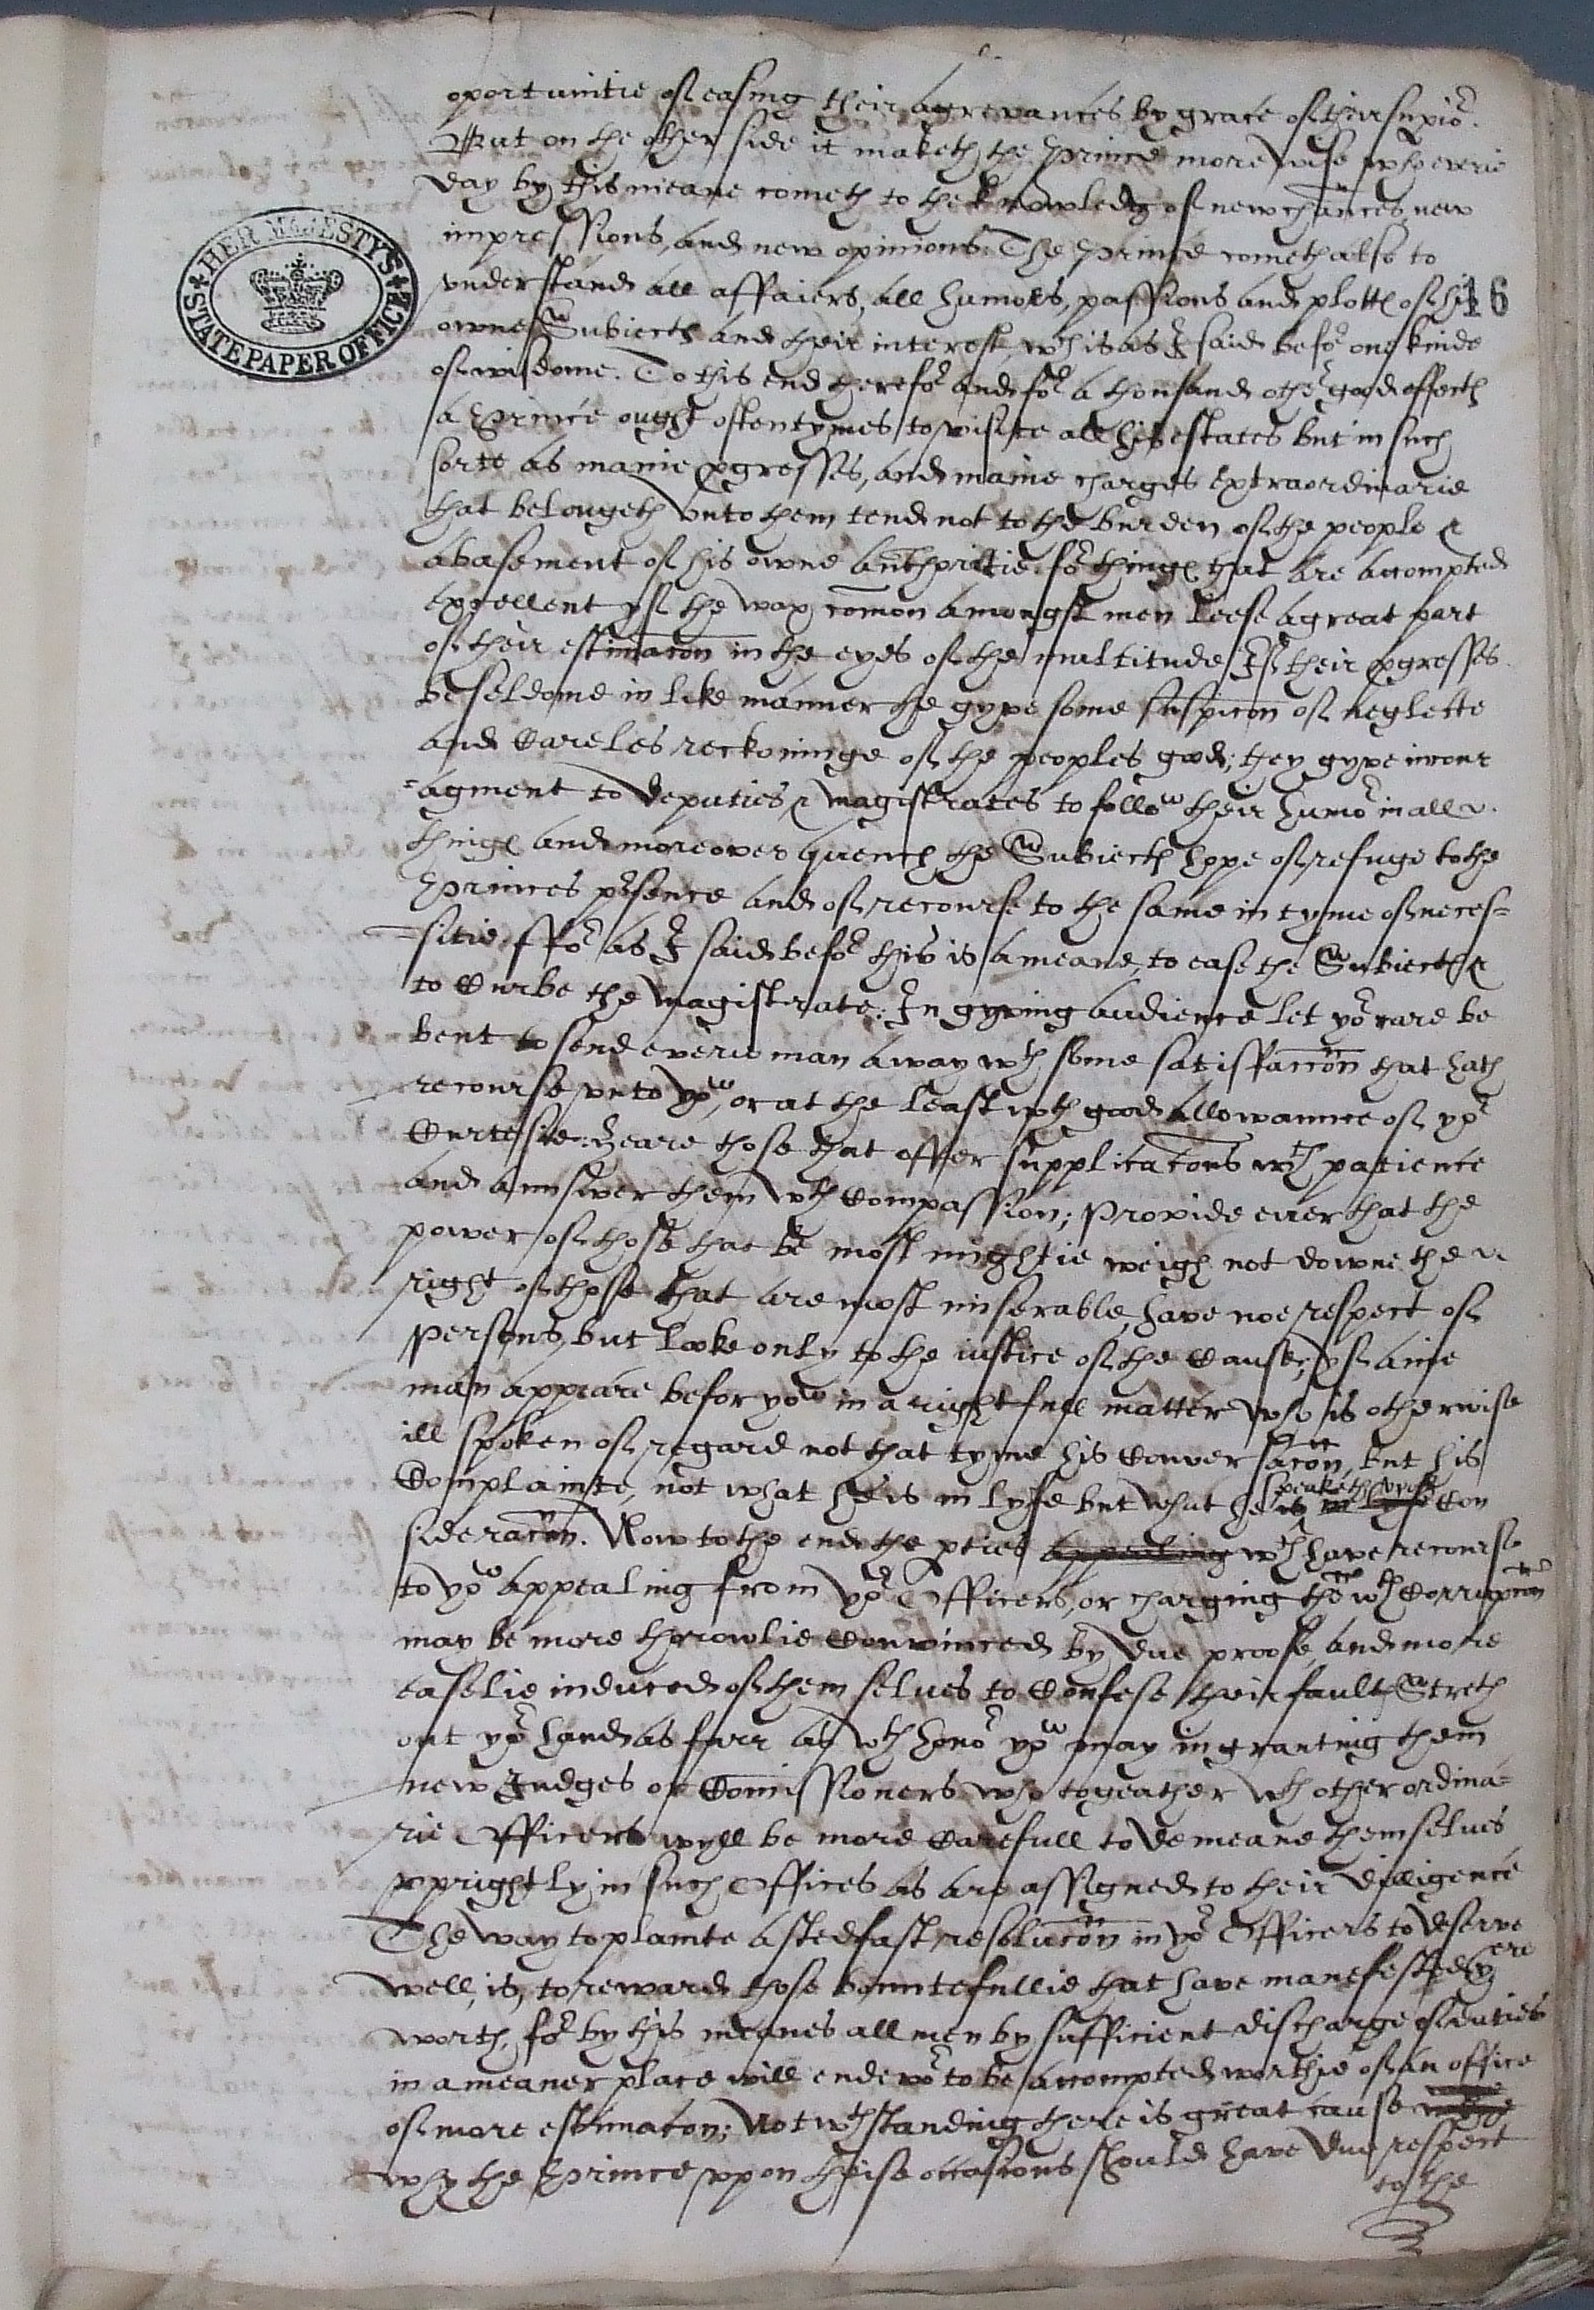 oportunitie of easing their agrevances by grace of their supiō.
But on the other side it maketh the Prince more wise who everie
day by this meane cometh to the knowledg of new chances new
impressions, and new opinions: The Prince cometh also to
HER MAJESTYS STATE PAPER OFFICE
vnderstand all affaiers, all humors, passions and plottes of his
16
owne Subiectes and their interest, wch is as I said befor one kinde
of wisdome. To this end therefor and for a thousand other good effectes
a Prince ought oftentymes to visite all his estates but in such
sorte as manie pgresses, and manie charges extraordinarie
that belongeth vnto them tend not to the burden of the people &
abasement of his owne authoritie. for thinges that are accompted
excellent yf the wax comon amongst men leese a great part
of their estimacon in the eyes of the multitude If their pgresses
be seldome in like manner he gyve some suspicon of neglecte
and Careles reckoninge of the peoples good; they gyve incour
=agment to deputies & magistrates to follow their humor in all
thinges and moreover quench the Subiectes hope of refuge to the
Princes psence and of recourse to the same in tyme of neces=
=sitie. ffor as I said befor this is a meane, to ease the Subiectes &
to Curbe the magistrate: In gyving audience let yor care be
bent to send everie man away wth some satisfaccon that hath
recourse vnto yow, or at the least wth good allowannce of yor
Curtesie: heare those that offer supplicacons wth patience
and annswer them wth Compassion; Provide ever that the
power of those that be most mightie weigh not downe the
right of those that are most miserable, have noe respect of
persons, but looke only to the iustice of the Cause; yf anie
man appeare befor yow in a rightfull matter who is otherwise
ill spoken of, regard not that tyme his Conversacon, but his
Complainte, not what he is in lyfe but what he speaketh wth is in lyfe Con
sideracon. Now to the end the pties appealing wch have recourse
to yow appealing from yor Officers, or charging them wth Corrupcon
may be more throwlie Convinced by due proofe, and more
easelie induced of them selves to Confese their faultes Stretch
out yor hand as farr as wth honor yow may in granting them
new Judges or Comissioners who togeather wth other ordina=
rie Officers wyll be more Carefull to demeane themselves
vprightly in such Offices as are assigned to their dilligence
The way to plainte a stedfast resolucon in yor Officers to deserve
well, is, to reward those bountefullie that have manefested there
worth, for by this meanes all men by sufficient discharge of duties
in a meaner place will endevor to be accompted worthie of an office
of more estimacon; Notwthstanding there is great cause
why the Prince vpon theise occasions should have due respect
to the